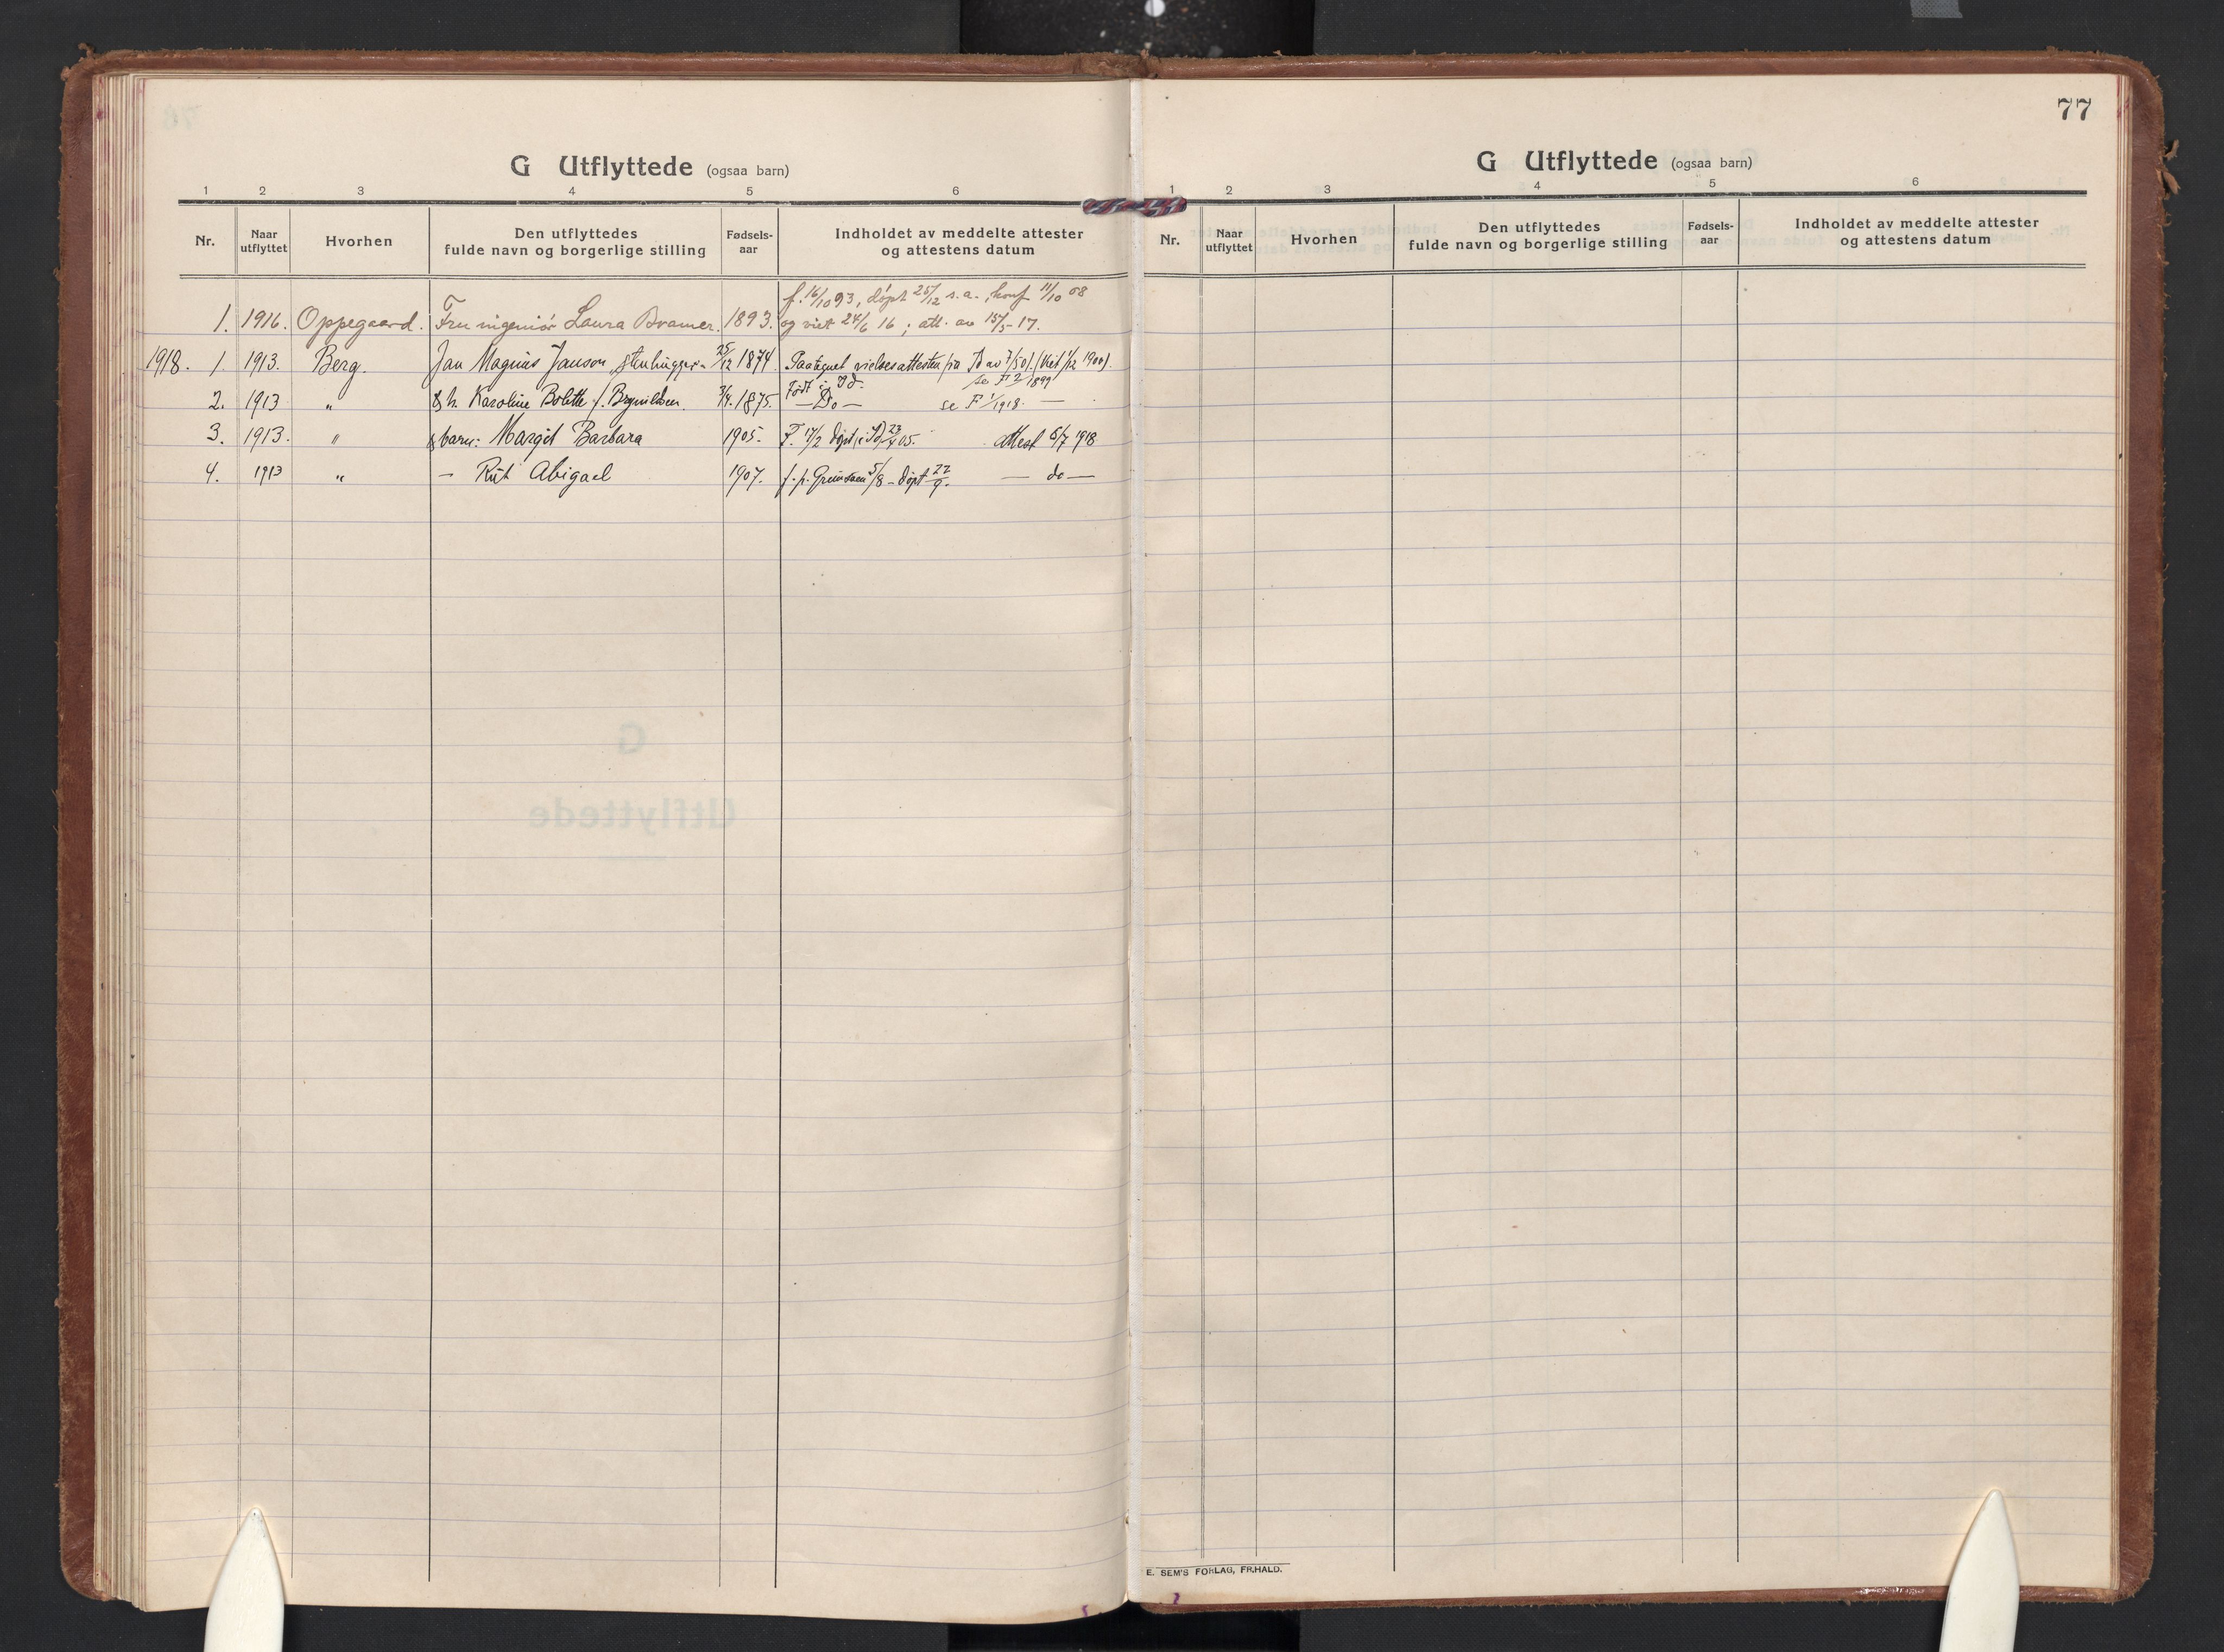 G Utflyttede (ogsaa barn)
1 2 3 4 5 6
Nr. Naar utflyttet Hvorhen Den utflyttedes fulde navn og borgerlige stilling Fødsels-aar Indholdet av meddelte attester og attestens datum
f. 16/10 93, døpt 25/12 s.a., konf 11/10 08
1. 1916. Oppegaard. Fru ingeniør Laura Bramer. 1893. og viet 24/6 16; att. av 15/5-17.
1918. 1. 1913. Berg. Jan Magnus Janson, stenhugger 25/12 1874. Paategnet vielsesattesten fra Id av (Viet 1/12 1900).
Født i Id. se F 2/1899
2. 1913 " & h. Karoline Bolette f. Brynildsen. 3/4. 1875. — Do — se F 1/1918. —
3. 1913. " & barn: Margit Barbara 1905. F. 17/2 døpt i Id 23/4 05. attest 6/7 1918
4. 1913 " — Rut Abigael 1907. f. p. 5/8 - døpt 22/9. — do —
77
G Utflyttede (ogsaa barn)
1 2 3 4 5 6
Nr. Naar utflyttet Hvorhen Den utflyttedes fulde navn og borgerlige stilling Fødsels-aar Indholdet av meddelte attester og attestens datum
E. SEM'S FORLAG, FR.HALD.